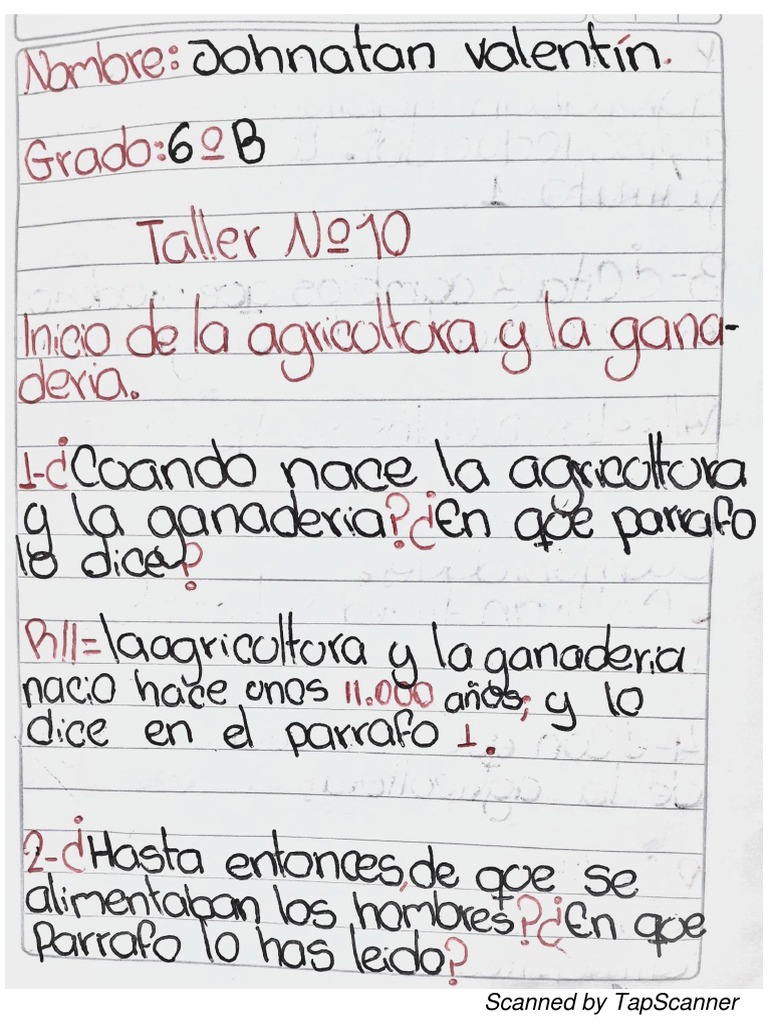 Nombre: Johnatan Valentín.
Grado: 6º B
Taller Nº 10
Inicio de la agricultura y la gana-
deria.
1-¿Cuando nace la agricultura
y la ganaderia? ¿En que parrafo
lo dice?
R//= la agricultura y la ganaderia
nacio hace unos 11.000 años; y lo
dice en el parrafo 1.
2-¿Hasta entonces, de que se
alimentaban los hombres? ¿En que
Parrafo lo has leido?
Scanned by TapScanner